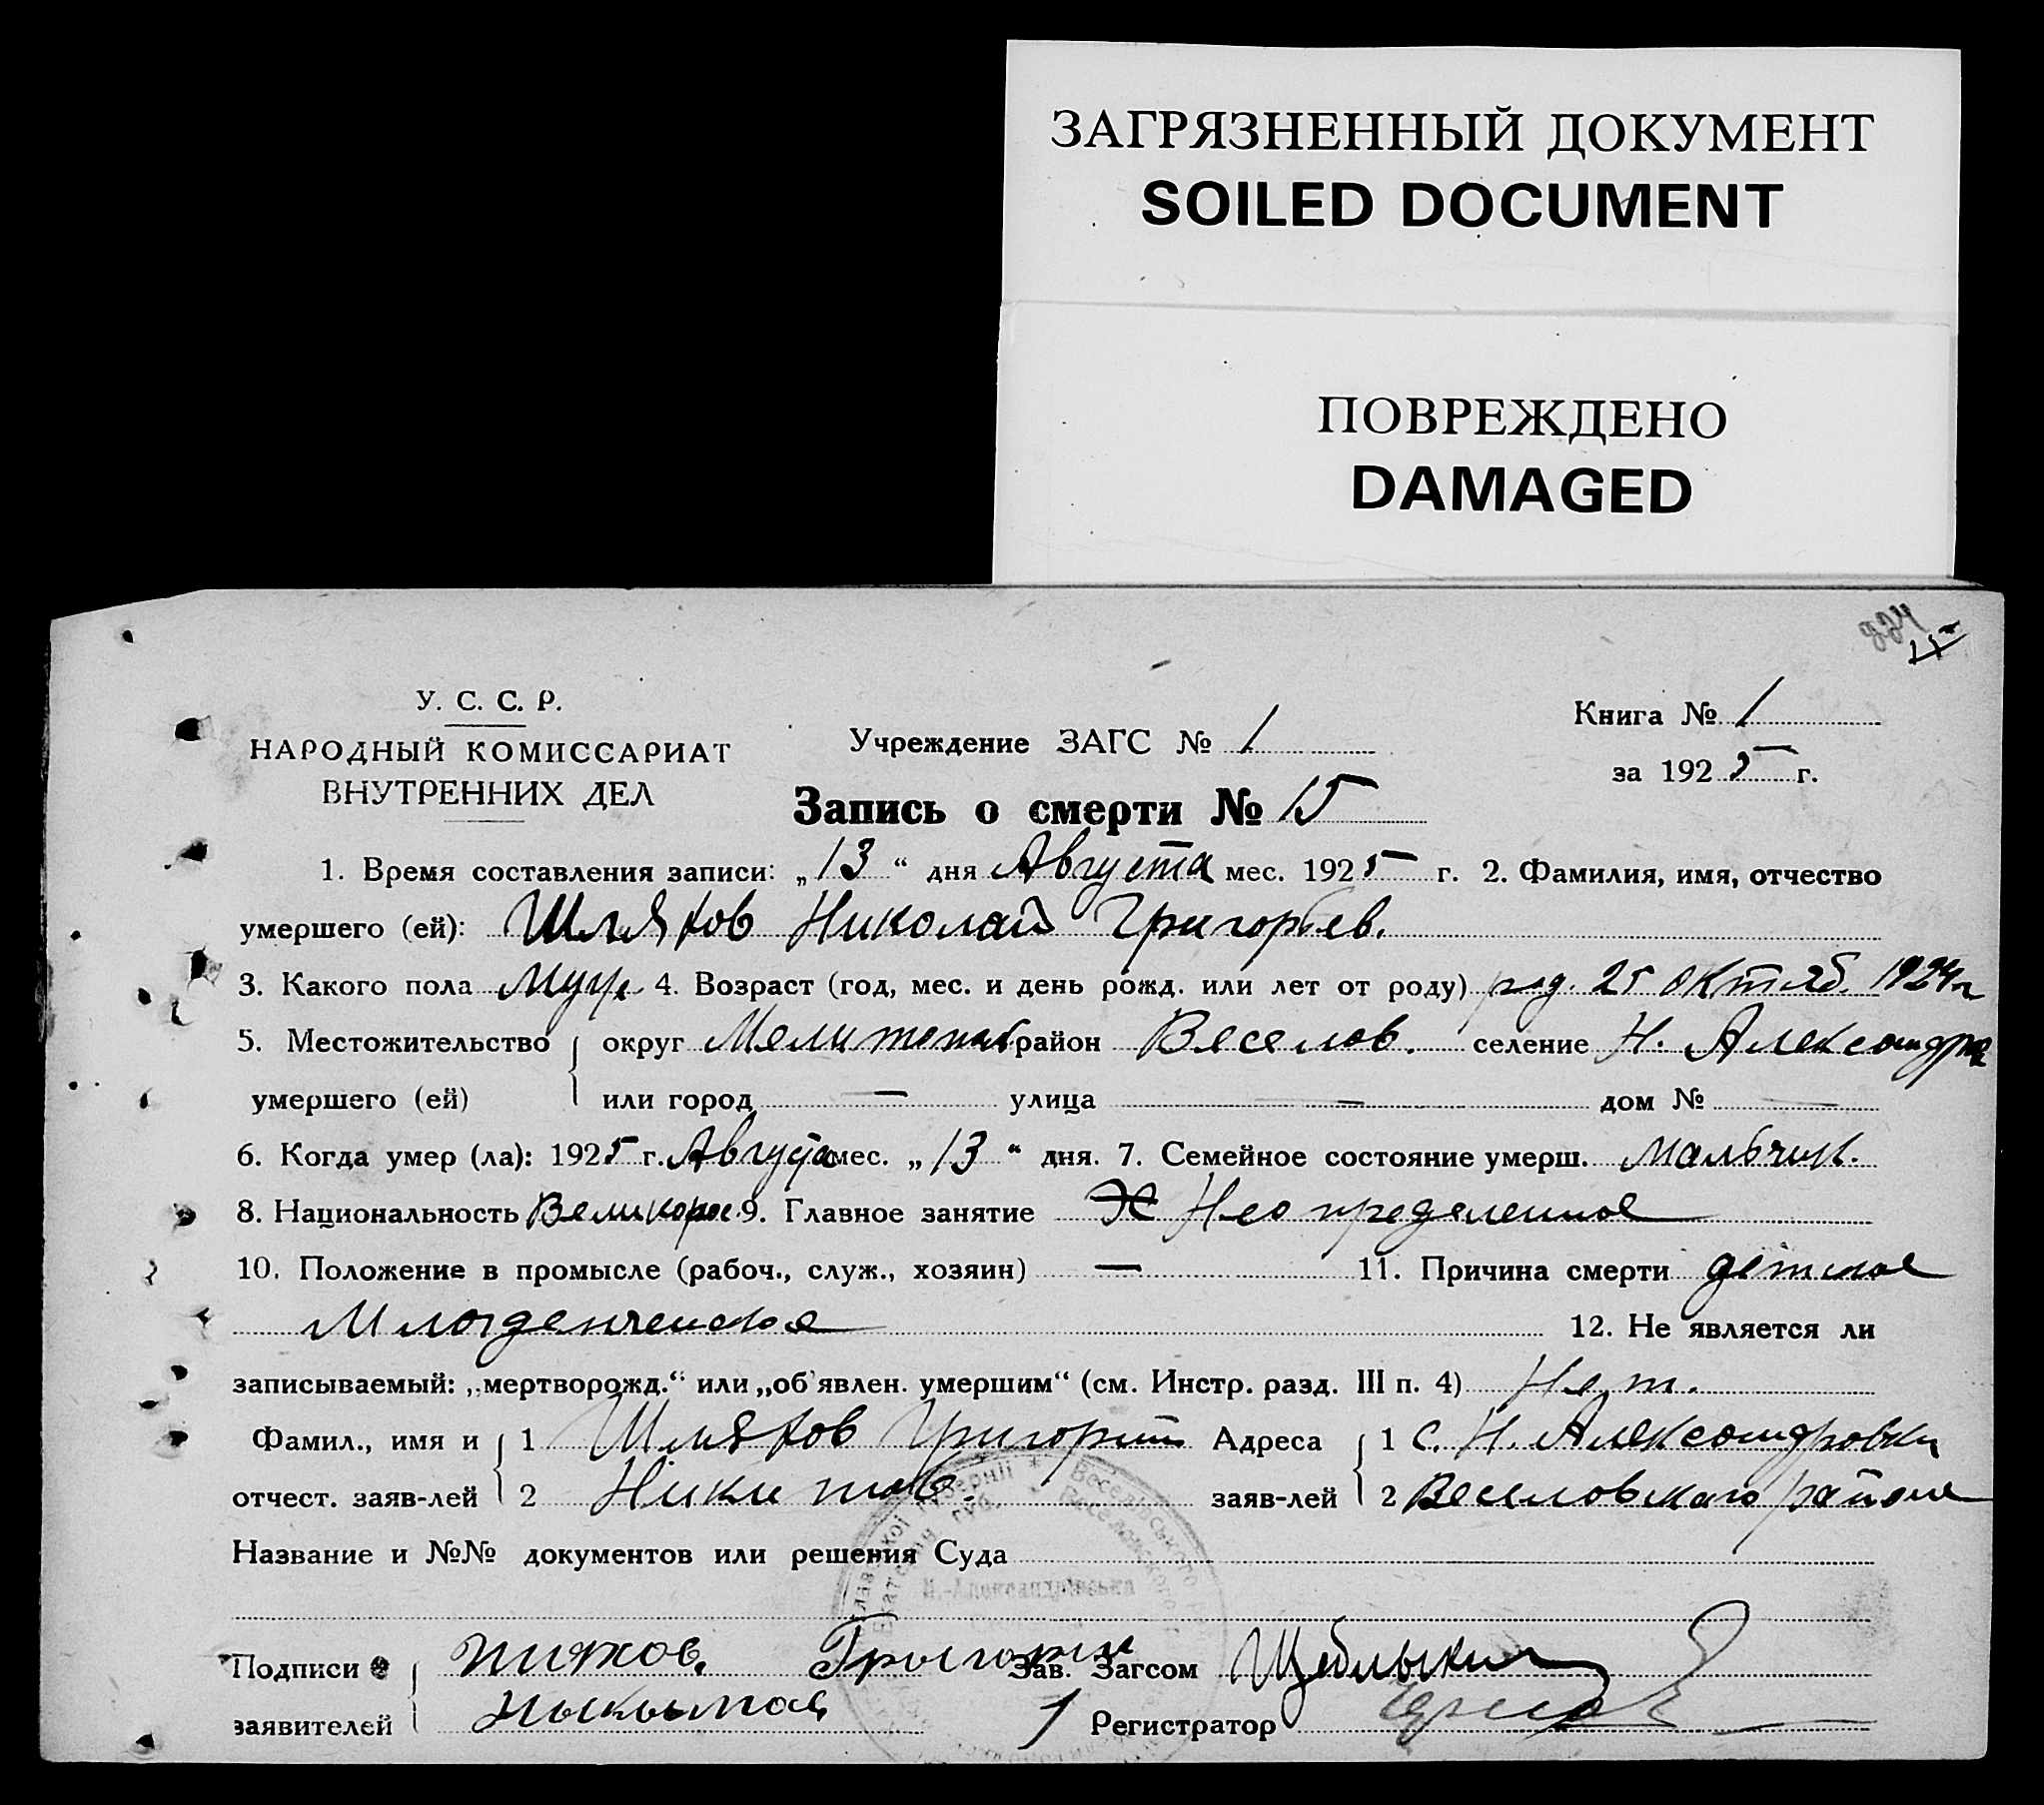 ЗАГРЯЗНЕННЫЙ ДОКУМЕНТ
SOILED DOCUMENT
ПОВРЕЖДЕНО
DAMAGED
У. С. С. Р.
НАРОДНЫЙ КОМИССАРИАТ
ВНУТРЕННИХ ДЕЛ
Учреждение ЗАГС № 1
Книга № 1
за 1925 г.
Запись о смерти № 15
1. Время составления записи: „13“ дня Августа мес. 1925 г. 2. Фамилия, имя, отчество
умершего (ей): Шляхов Николай Григорьев.
3. Какого пола Муж 4. Возраст (год, мес. и день рожд. или лет от роду) род. 25 октяб. 1924 г
5. Местожительство округ Мелитопол район Веселов. селение Н. Александров
умершего (ей) или город — улица — дом № —
6. Когда умер (ла): 1925 г. Августа мес. „13“ дня. 7. Семейное состояние умерш. Мальчик.
8. Национальность Великорос. 9. Главное занятие Неопределенное
10. Положение в промысле (рабоч., служ., хозяин) — 11. Причина смерти детское
Младенческое 12. Не является ли
записываемый: „мертворожд.“ или „об'явлен. умершим“ (см. Инстр. разд. III п. 4) Нет.
Фамил., имя и 1 Шляхов Григорий Адреса 1 С. Н. Александровки
отчест. заяв-лей 2 Никитов. заяв-лей 2 Веселовского района
Название и №№ документов или решения Суда
Н.-Александрівська
Подписи Григорий Зав. Загсом
заявителей Регистратор